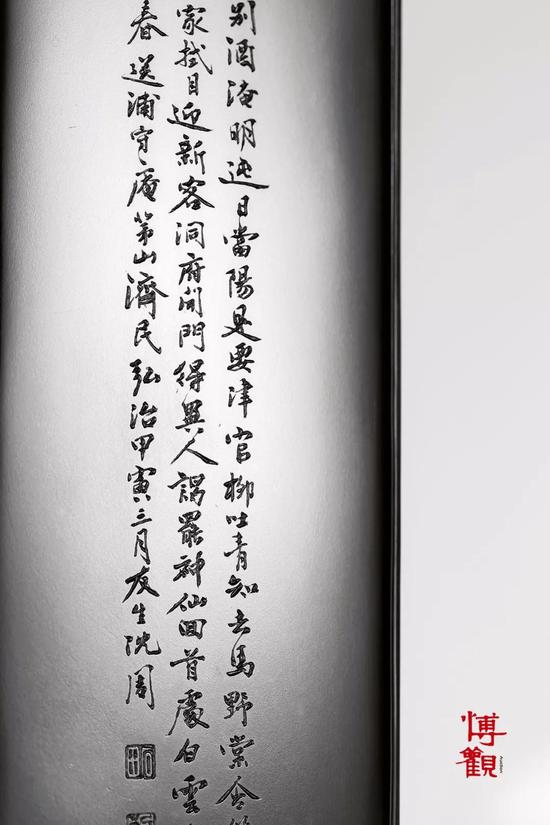 别酒淹明日當陽是要津官柳吐青知去馬野棠含
家拭目迎新客洞府開門得異人謁罷神仙回首處白雲
春送浦守庵第山濟民弘治甲寅三月友生沈周
愽觀